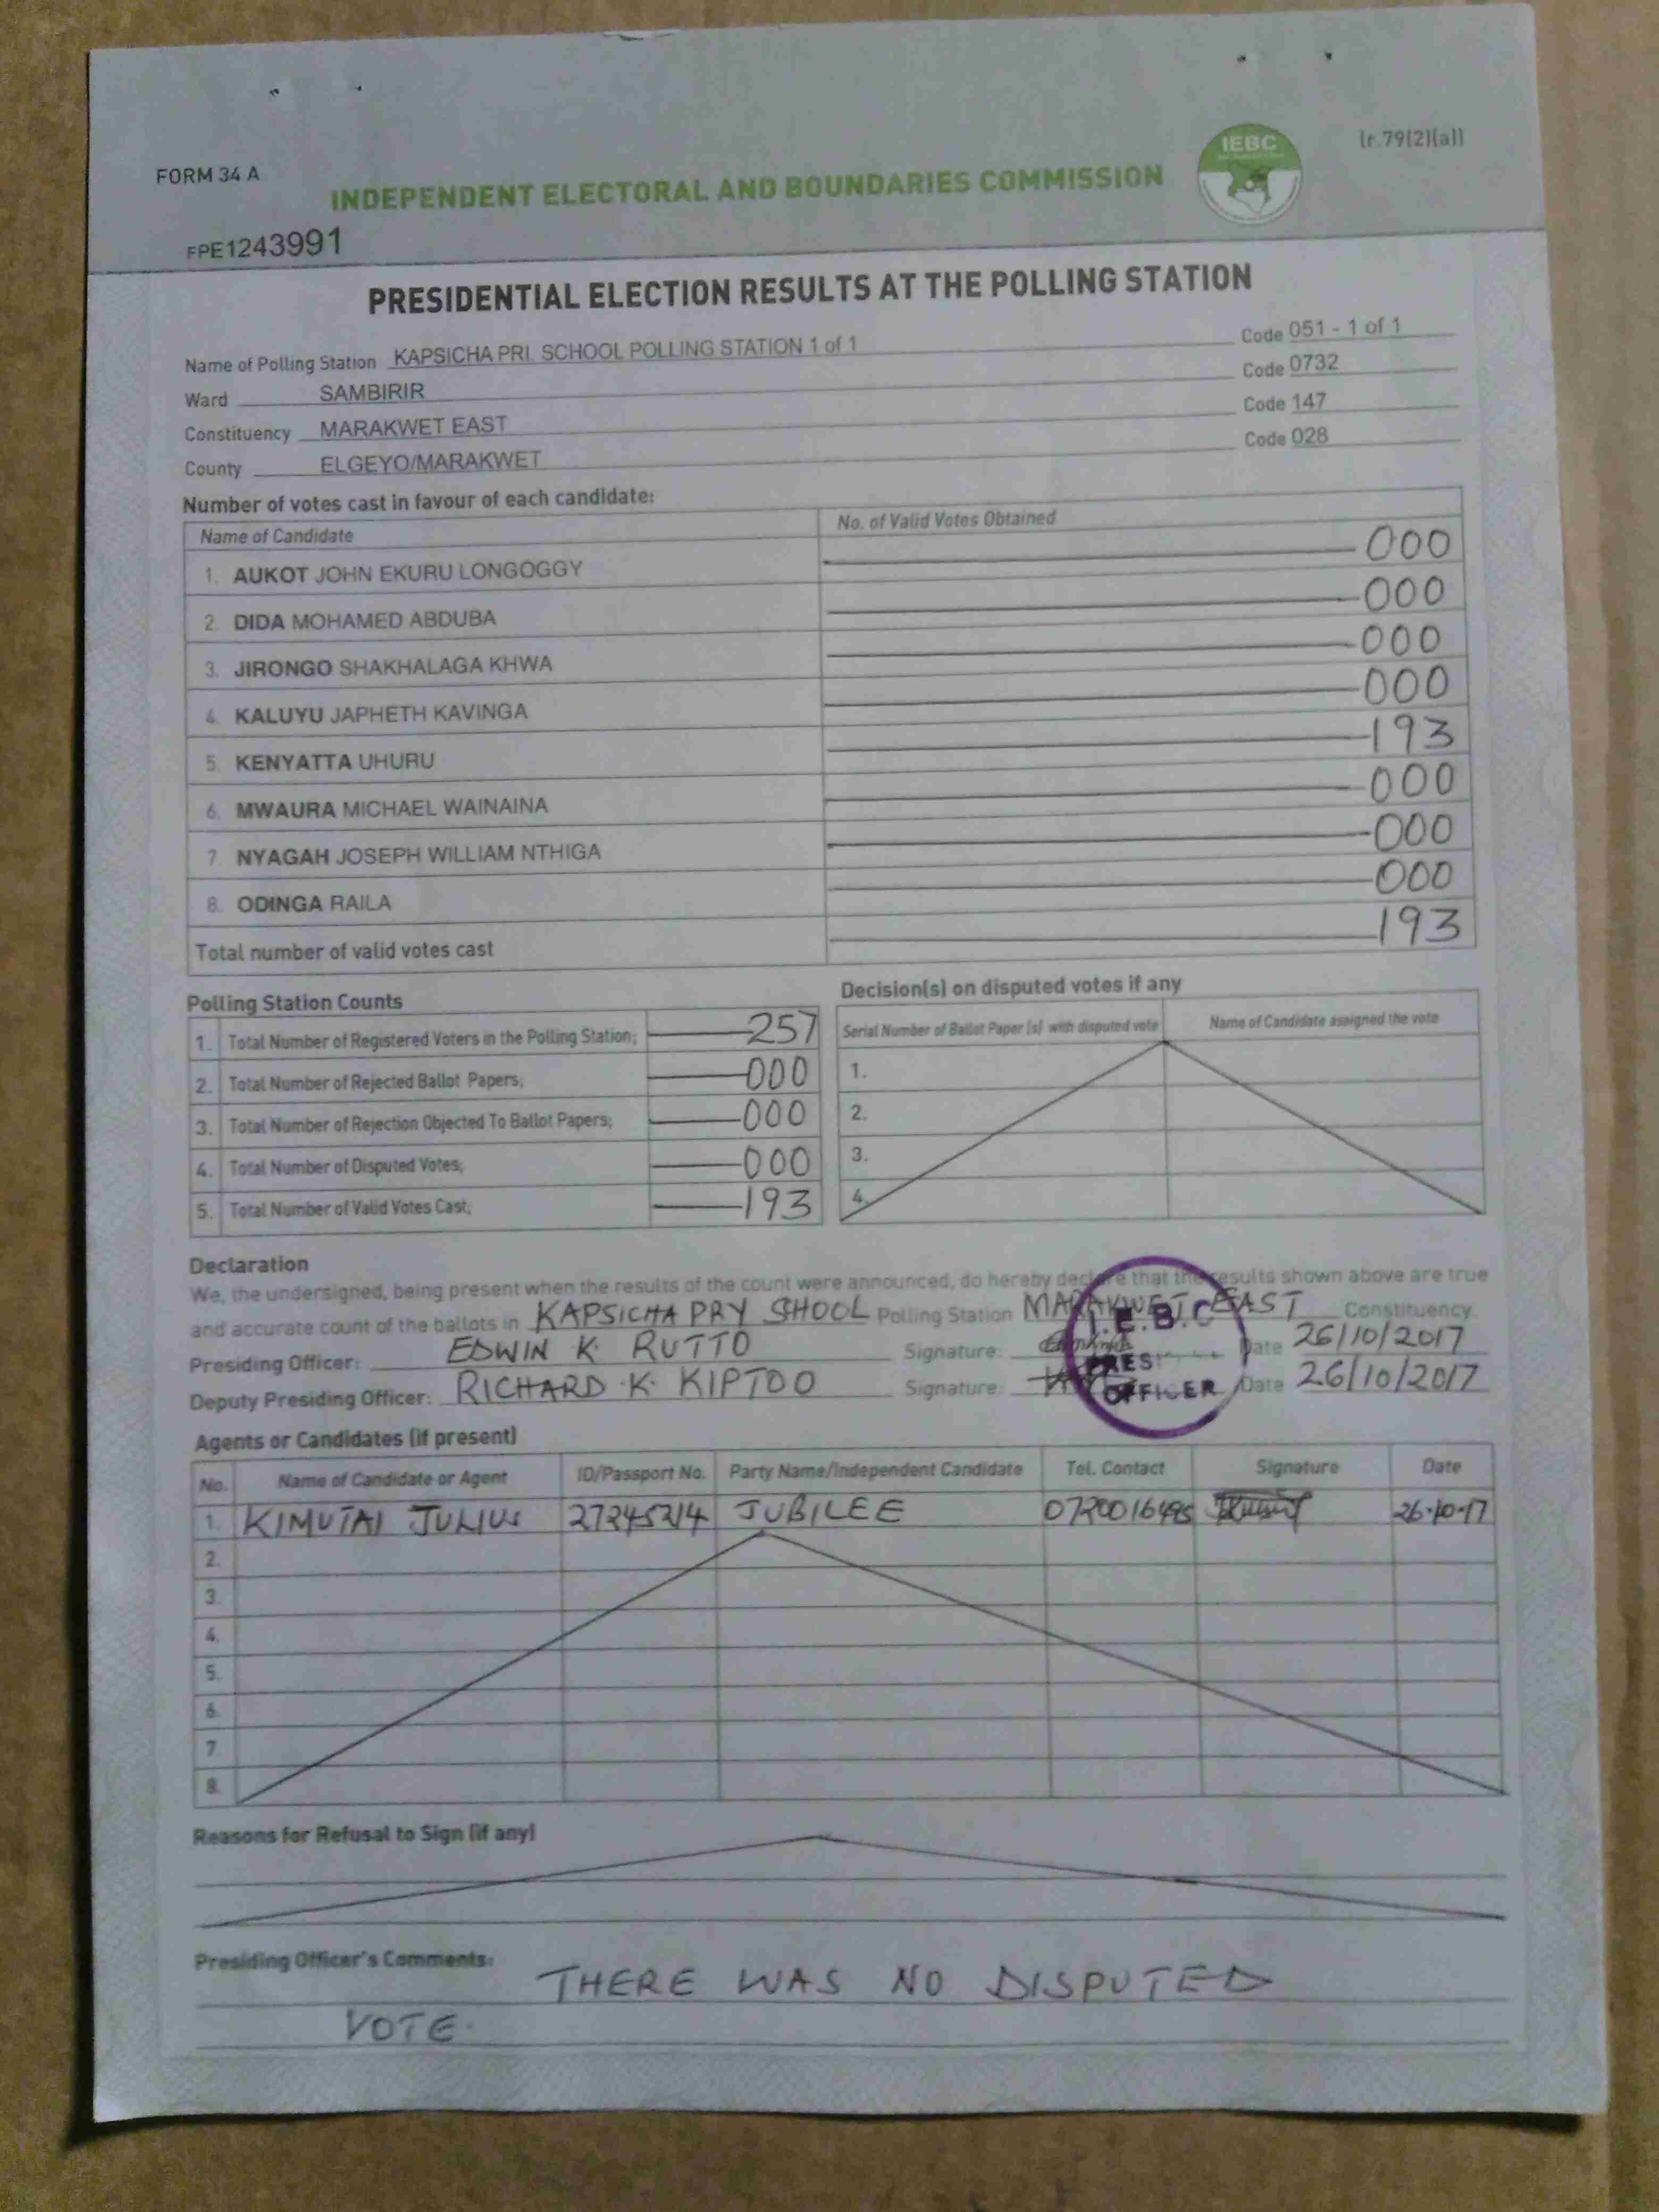 FORM 34 A
(r.79(2)(a))
IEBC
INDEPENDENT ELECTORAL AND BOUNDARIES COMMISSION
FPE1243991
PRESIDENTIAL ELECTION RESULTS AT THE POLLING STATION
Name of Polling Station KAPSICHA PRI. SCHOOL POLLING STATION 1 of 1 Code 051 - 1 of 1
Ward SAMBIRIR Code 0732
Constituency MARAKWET EAST Code 147
County ELGEYO/MARAKWET Code 028
Number of votes cast in favour of each candidate:
Name of Candidate No. of Valid Votes Obtained
1. AUKOT JOHN EKURU LONGOGGY 000
2. DIDA MOHAMED ABDUBA 000
3. JIRONGO SHAKHALAGA KHWA 000
4. KALUYU JAPHETH KAVINGA 000
5. KENYATTA UHURU 193
6. MWAURA MICHAEL WAINAINA 000
7. NYAGAH JOSEPH WILLIAM NTHIGA 000
8. ODINGA RAILA 000
Total number of valid votes cast 193
Polling Station Counts
1. Total Number of Registered Voters in the Polling Station; 257
2. Total Number of Rejected Ballot Papers; 000
3. Total Number of Rejection Objected To Ballot Papers; 000
4. Total Number of Disputed Votes; 000
5. Total Number of Valid Votes Cast; 193
Decision(s) on disputed votes if any
Serial Number of Ballot Paper (s) with disputed vote Name of Candidate assigned the vote
1.
2.
3.
4.
Declaration
We, the undersigned, being present when the results of the count were announced, do hereby declare that the results shown above are true
and accurate count of the ballots in KAPSICHA PRY SHOOL Polling Station MARAKWET EAST Constituency.
Presiding Officer: EDWIN K. RUTTO Signature: Date 26/10/2017
Deputy Presiding Officer: RICHARD K. KIPTOO Signature: Date 26/10/2017
I.E.B.C
OFFICER
Agents or Candidates (if present)
No. Name of Candidate or Agent ID/Passport No. Party Name/Independent Candidate Tel. Contact Signature Date
1. KIMUTAI JULIUS JUBILEE 26-10-17
2.
3.
4.
5.
6.
7
8.
Reasons for Refusal to Sign (if any)
Presiding Officer's Comments: THERE WAS NO DISPUTED
VOTE.